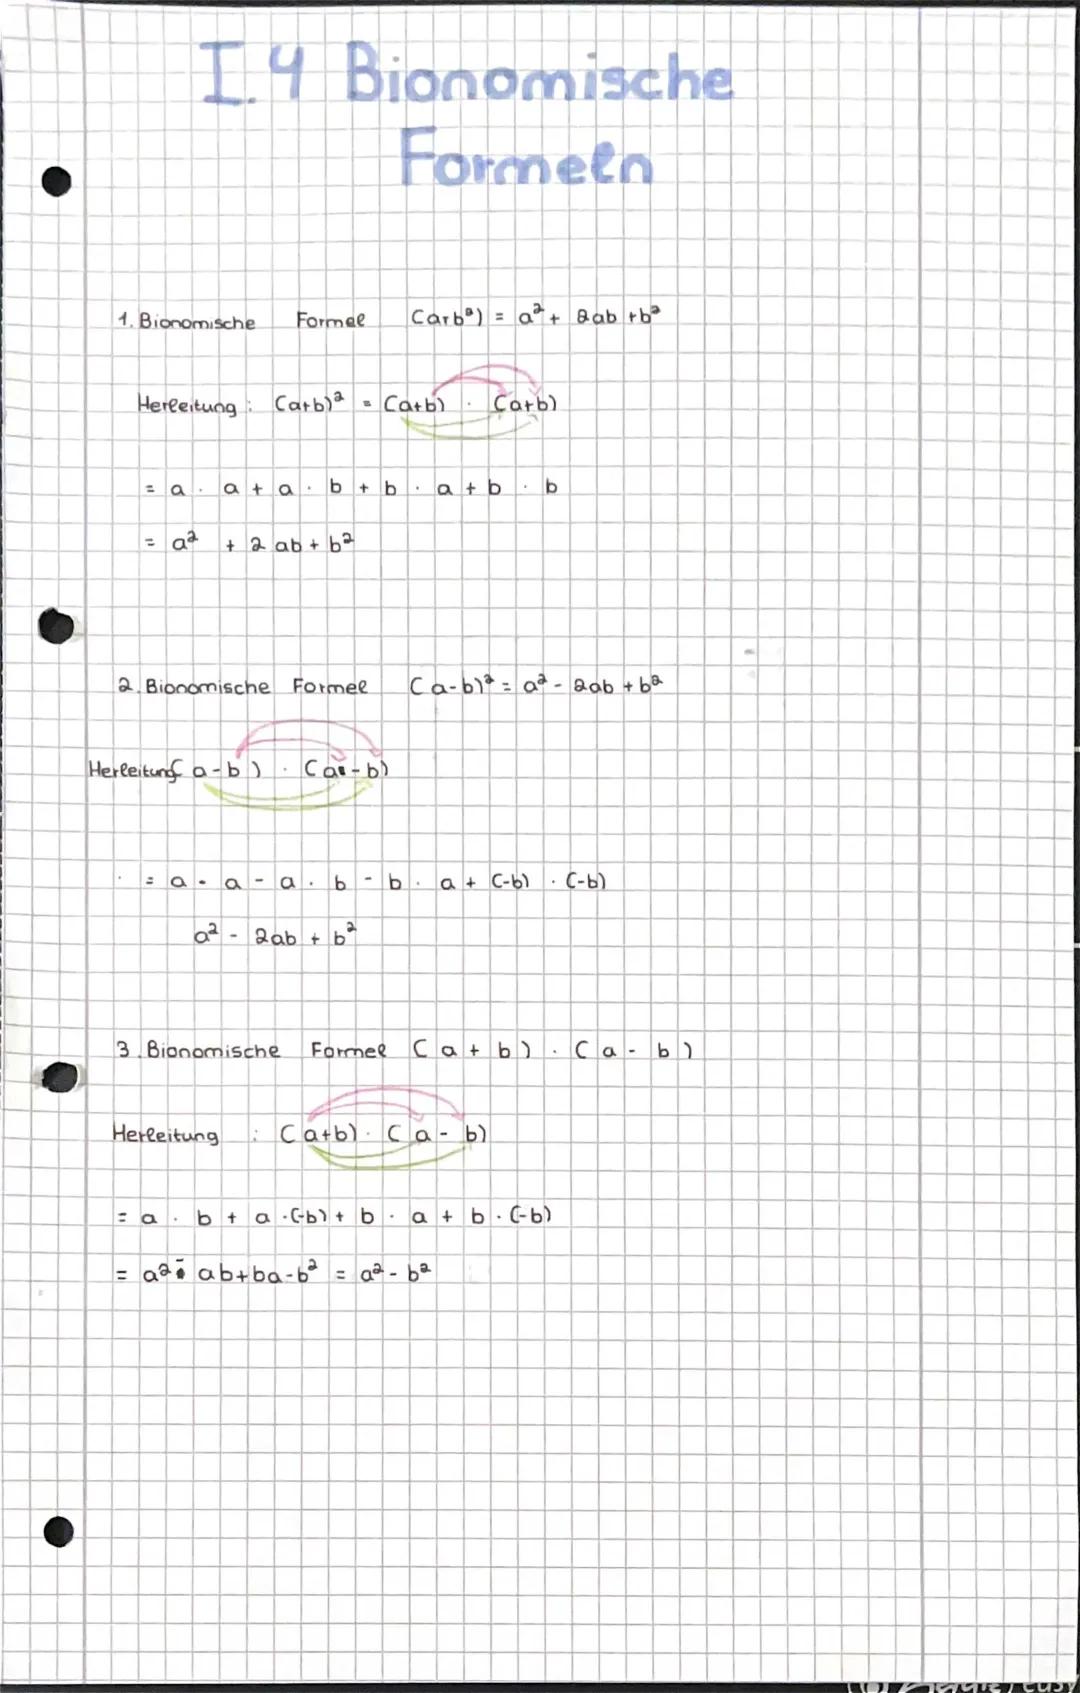 I.4 Bionomische
Formeln
1. Bionomische Formel (a+b²) = a² + 2ab + b²
Herleitung : (a+b)² = (a+b) · (a+b)
= a · a + a · b + b · a + b · b
= a² + 2 ab + b²
2. Bionomische Formel (a-b)² = a² - 2ab + b²
Herleitung( a-b ) · (a - b)
= a · a - a · b - b · a + (-b) · (-b)
a² - 2ab + b²
3. Bionomische Formel ( a + b ) · ( a - b )
Herleitung : ( a+b) · ( a - b)
= a · b + a · (-b) + b · a + b · (-b)
= a² - ab+ba-b² = a² - b²